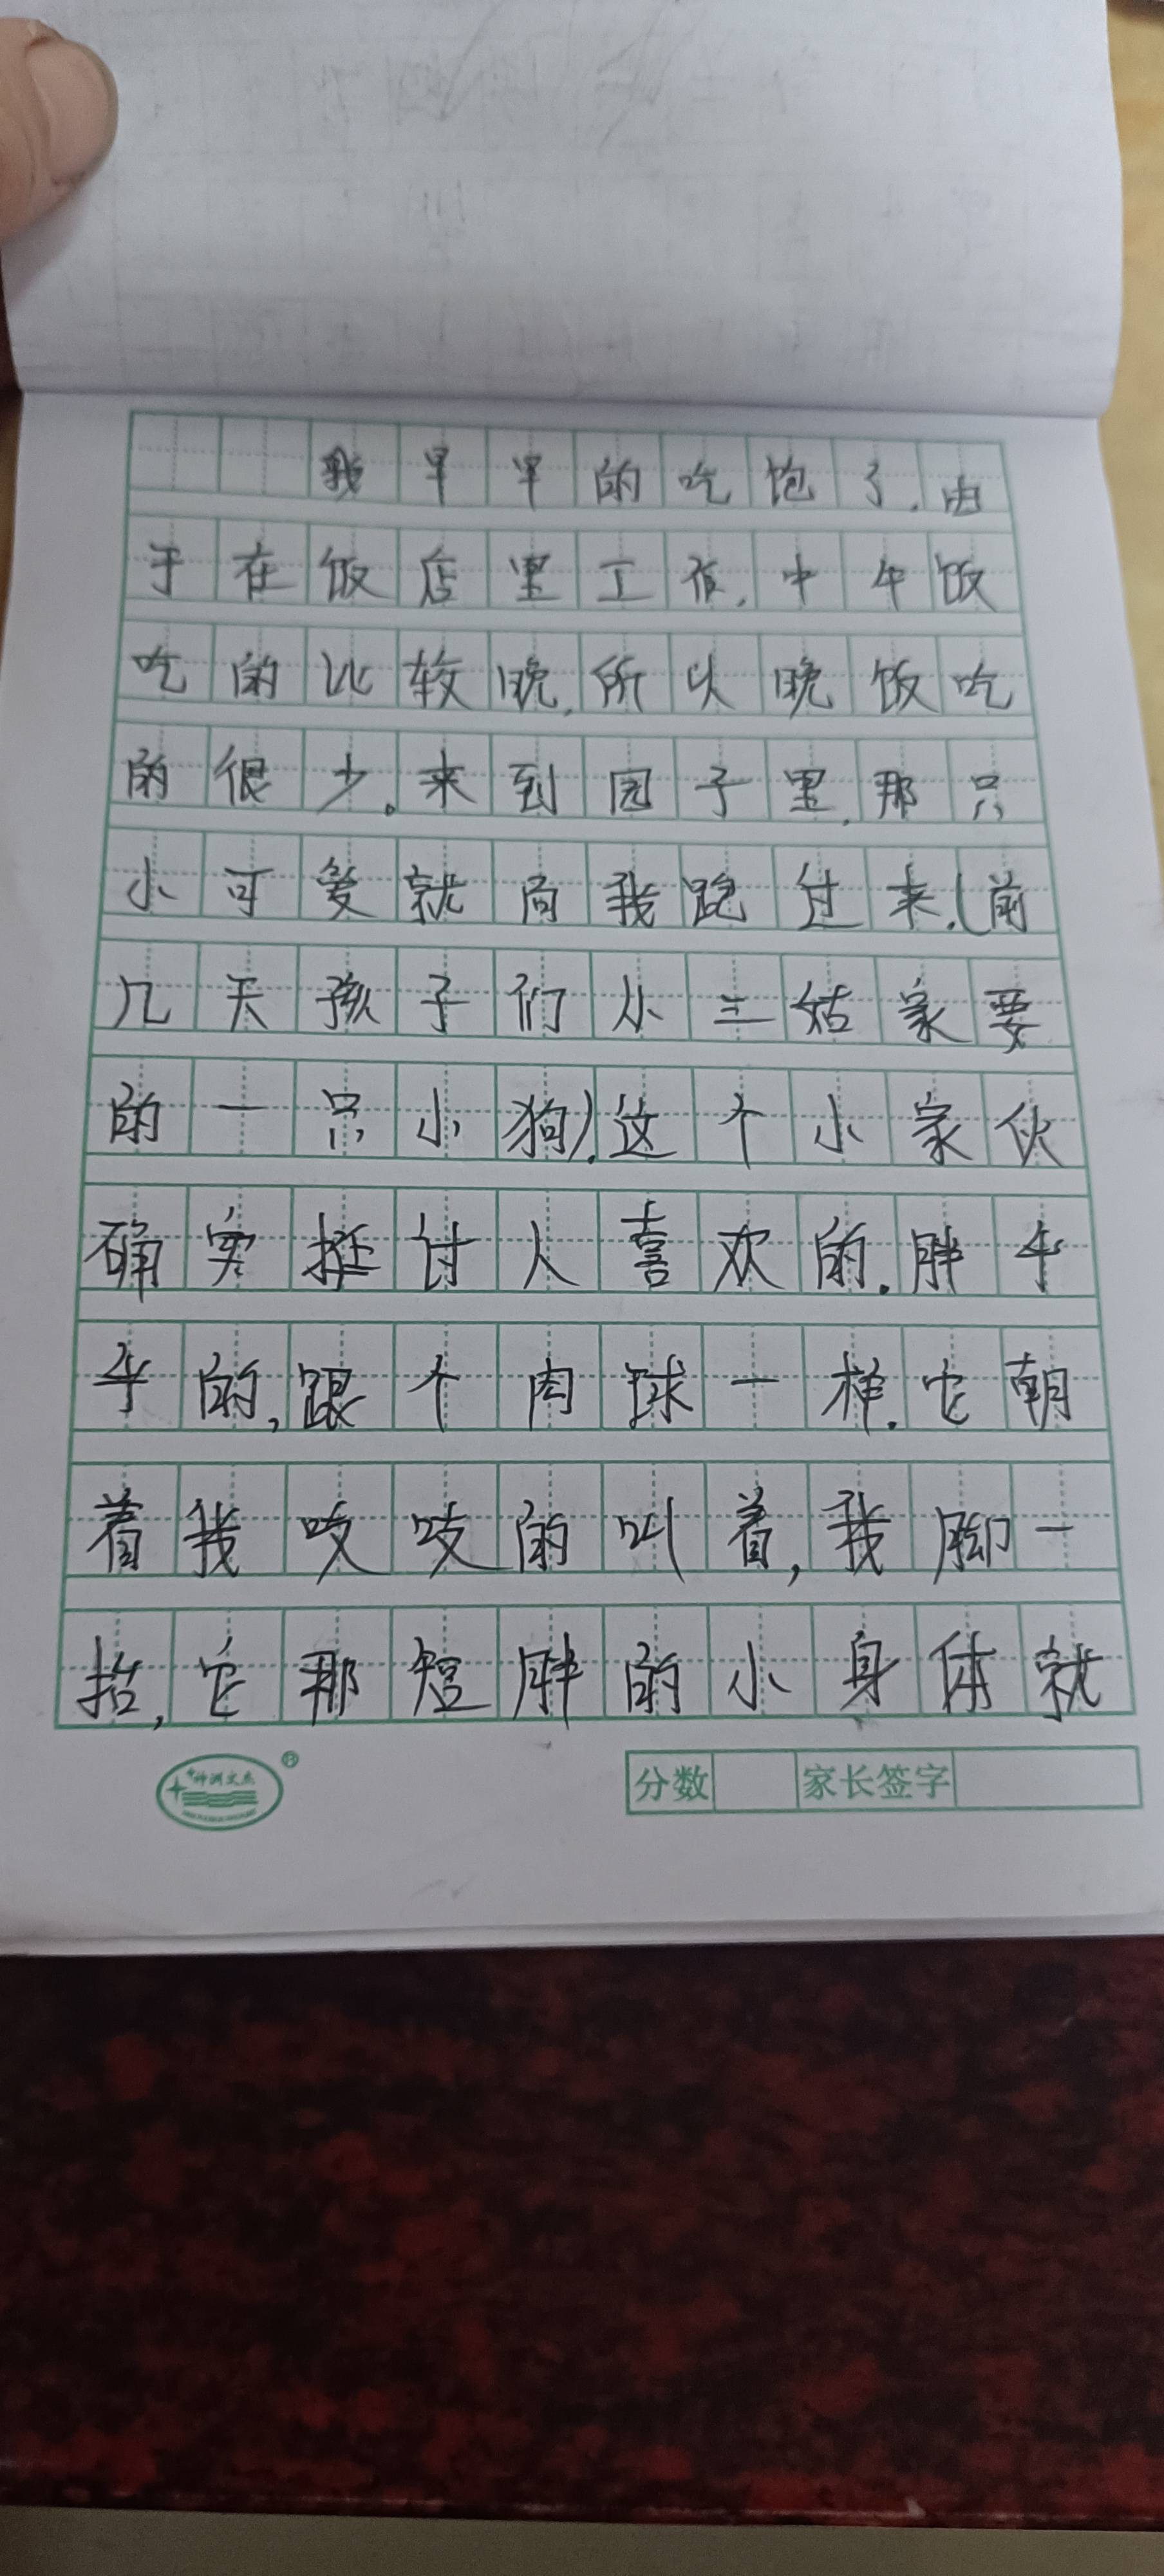 我早早的吃饱了.由
于在饭店里工作,中午饭
吃的比较晚,所以晚饭吃
的很少。来到园子里,那只
小可爱就向我跑过来.(前
几天孩子们从三姑家要
的一只小狗).这个小家伙
确实挺讨人喜欢的.胖乎
乎的,跟个肉球一样.它朝
着我吱吱的叫着,我脚一
抬,它那短胖的小身体就
神洲文杰
®
分数 家长签字